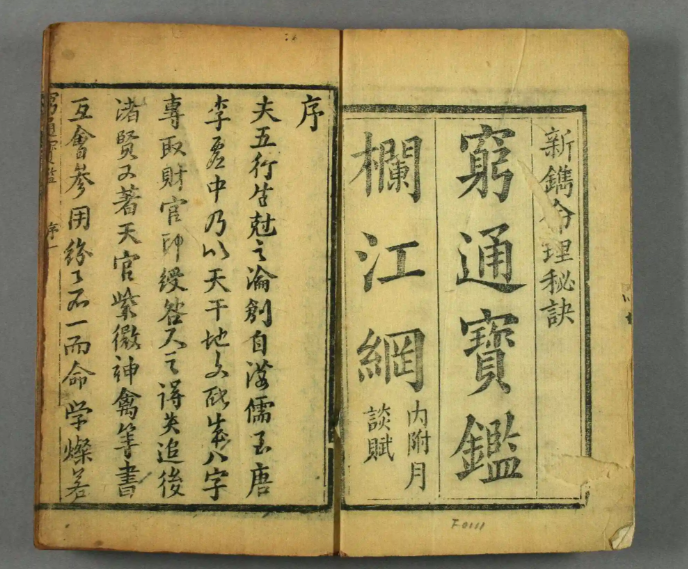 新鐫命理秘訣
窮通寶鑑
欄江網
內附月
談賦
序
夫五行生尅之論創自漢儒至唐
李虛中乃以天干地支配生成八字
專取財官印綬然人之得失追後
諸賢又著天官紫微神禽等書
互會參用紛々不一而命学燦若
窮通寶鑑
序一
F-0111